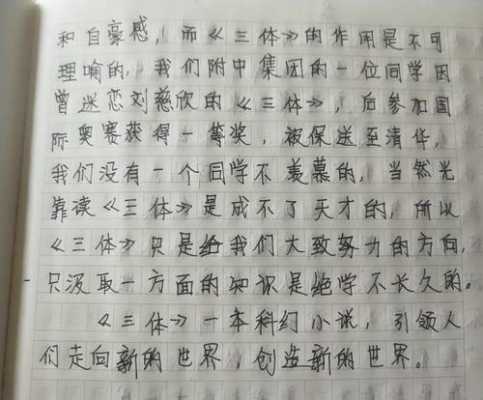 和自豪感，而《三体》的作用是不可
理喻的，我们附中集团的一位同学因
曾迷恋刘慈欣的《三体》，后参加国
际奥赛获得一等奖，被保送至清华，
我们没有一个同学不羡慕的，当然光
靠读《三体》是成不了天才的，所以
《三体》只是给我们大致努力的方向，
只汲取一方面的知识是绝学不长久的。
《三体》一本科幻小说，引领人
们走向新的世界，创造新的世界。